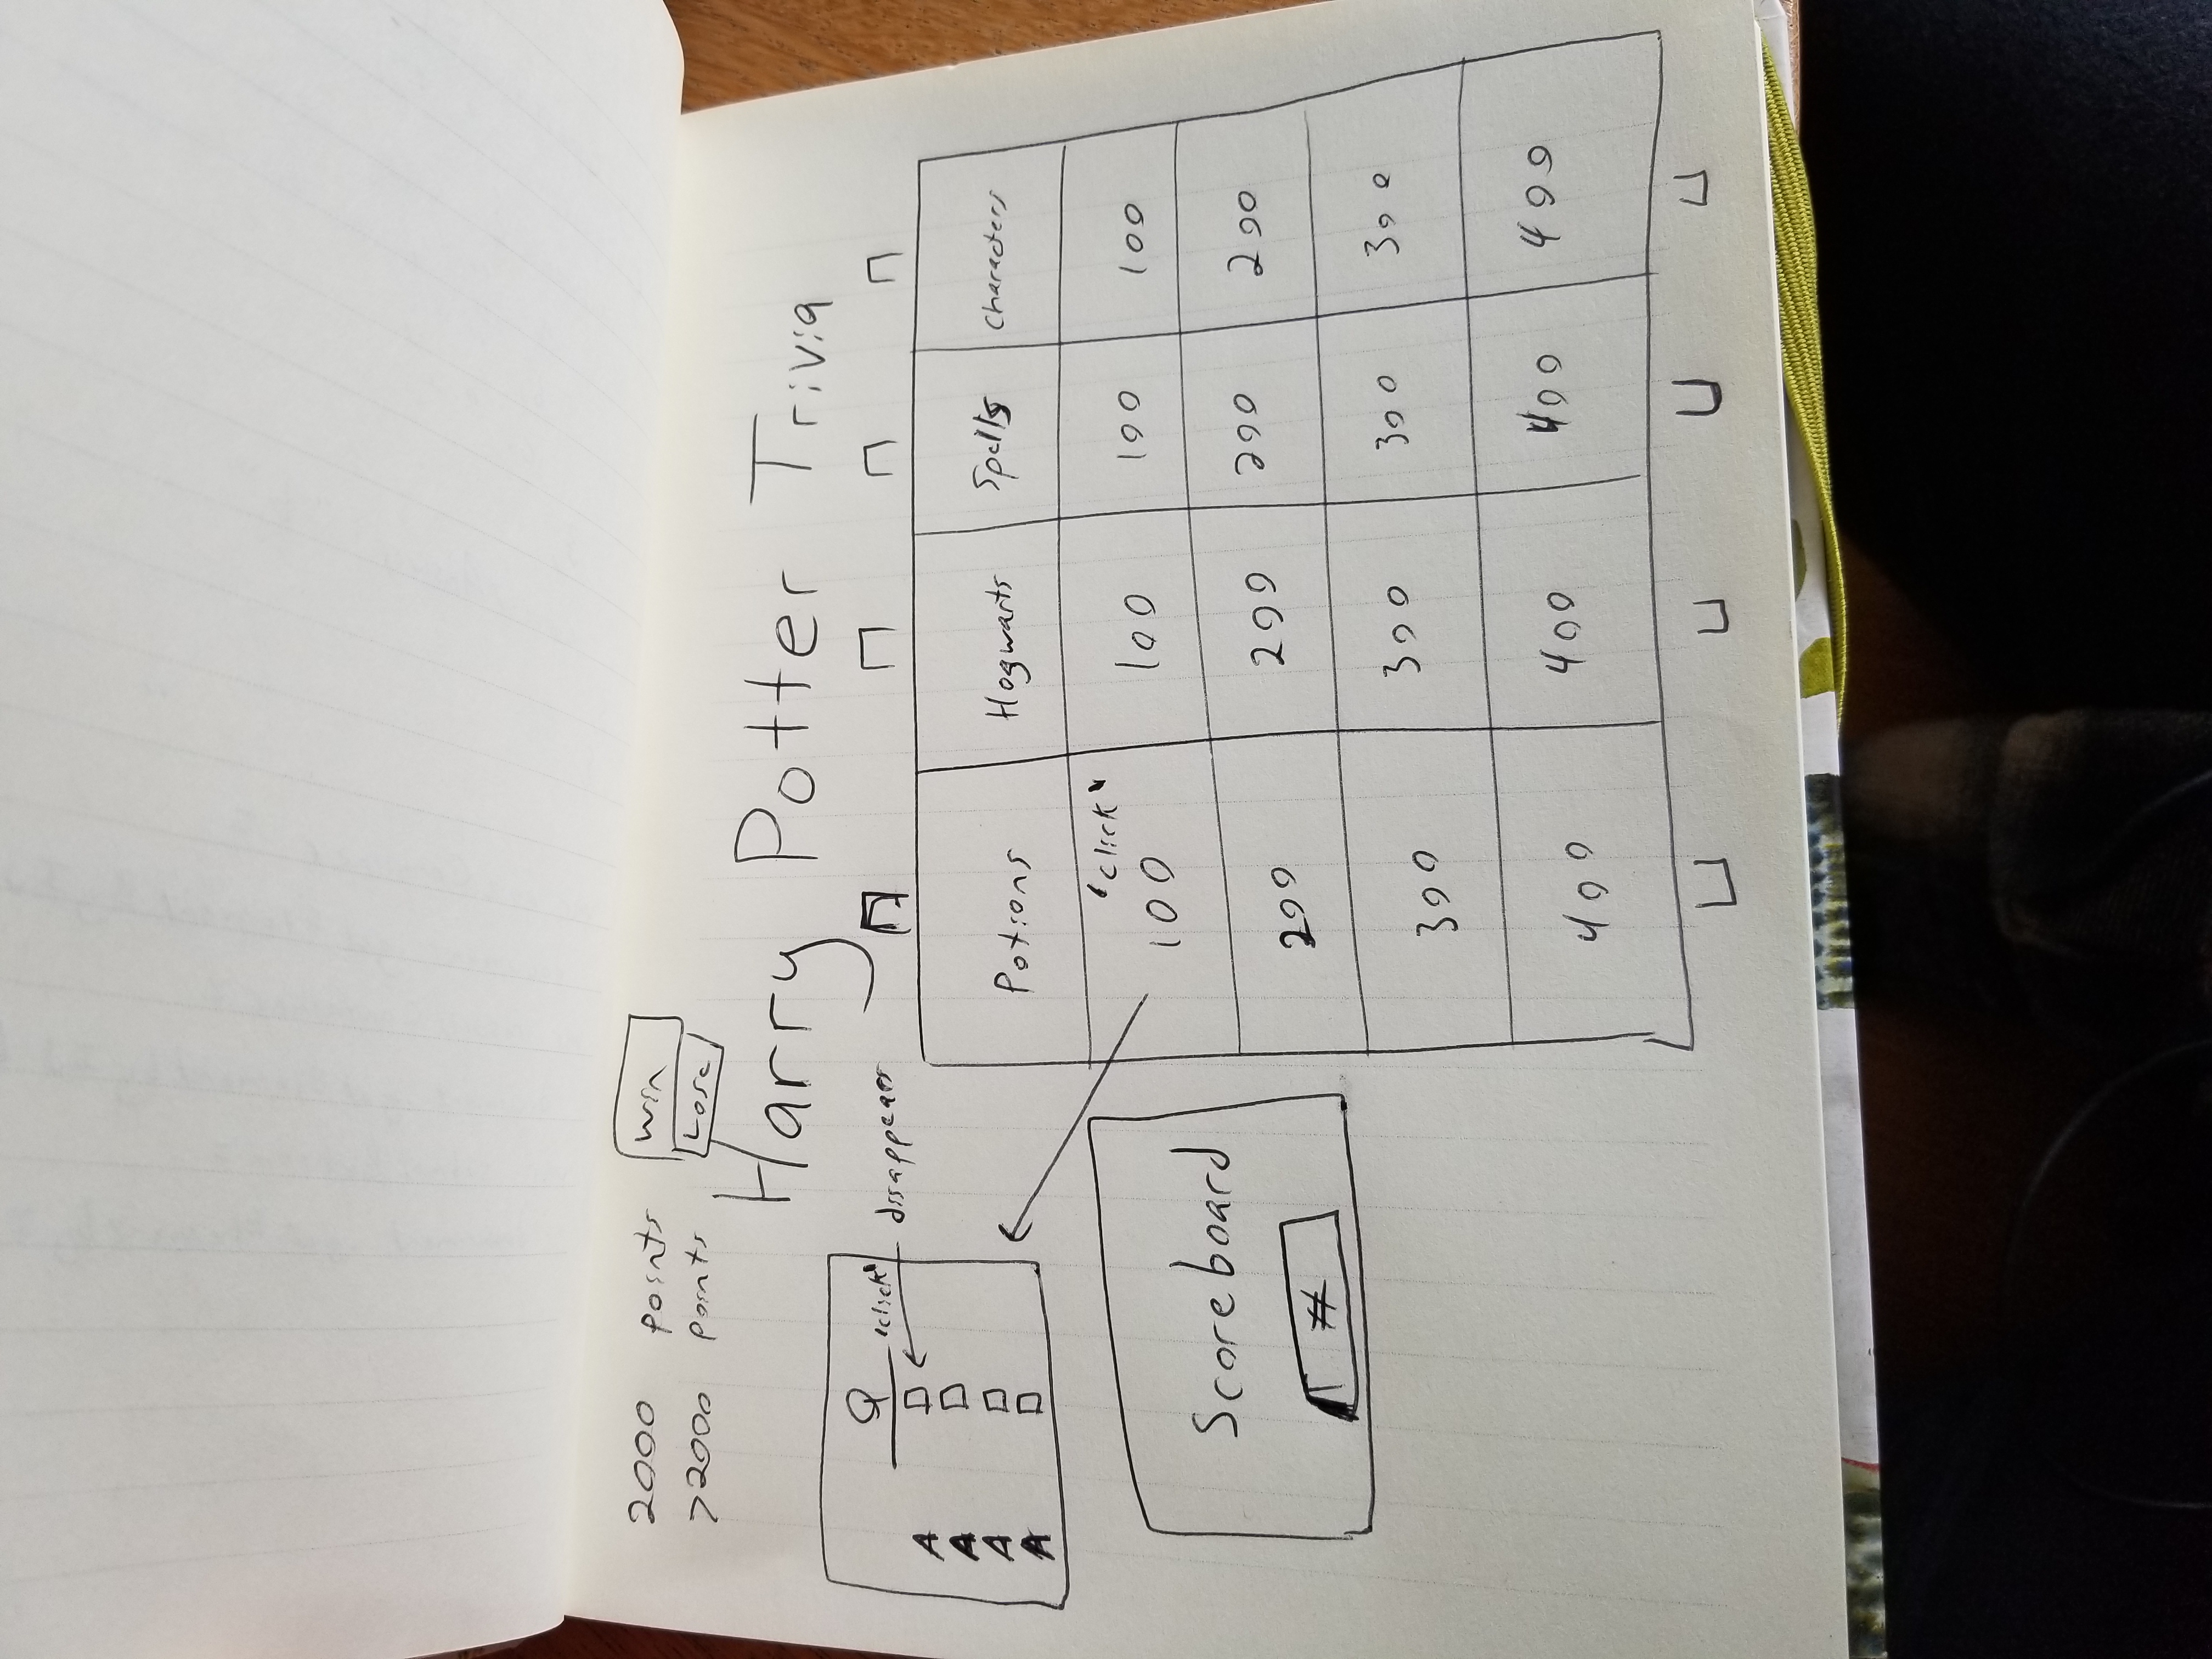 2000 points Win
>2000 points Lose
Harry Potter Trivia
Q
'click' disappears
A
A
A
A
Scoreboard
#
Potions Hogwarts Spells Characters
'click'
100 100 100 100
200 200 200 200
300 300 300 300
400 400 400 400